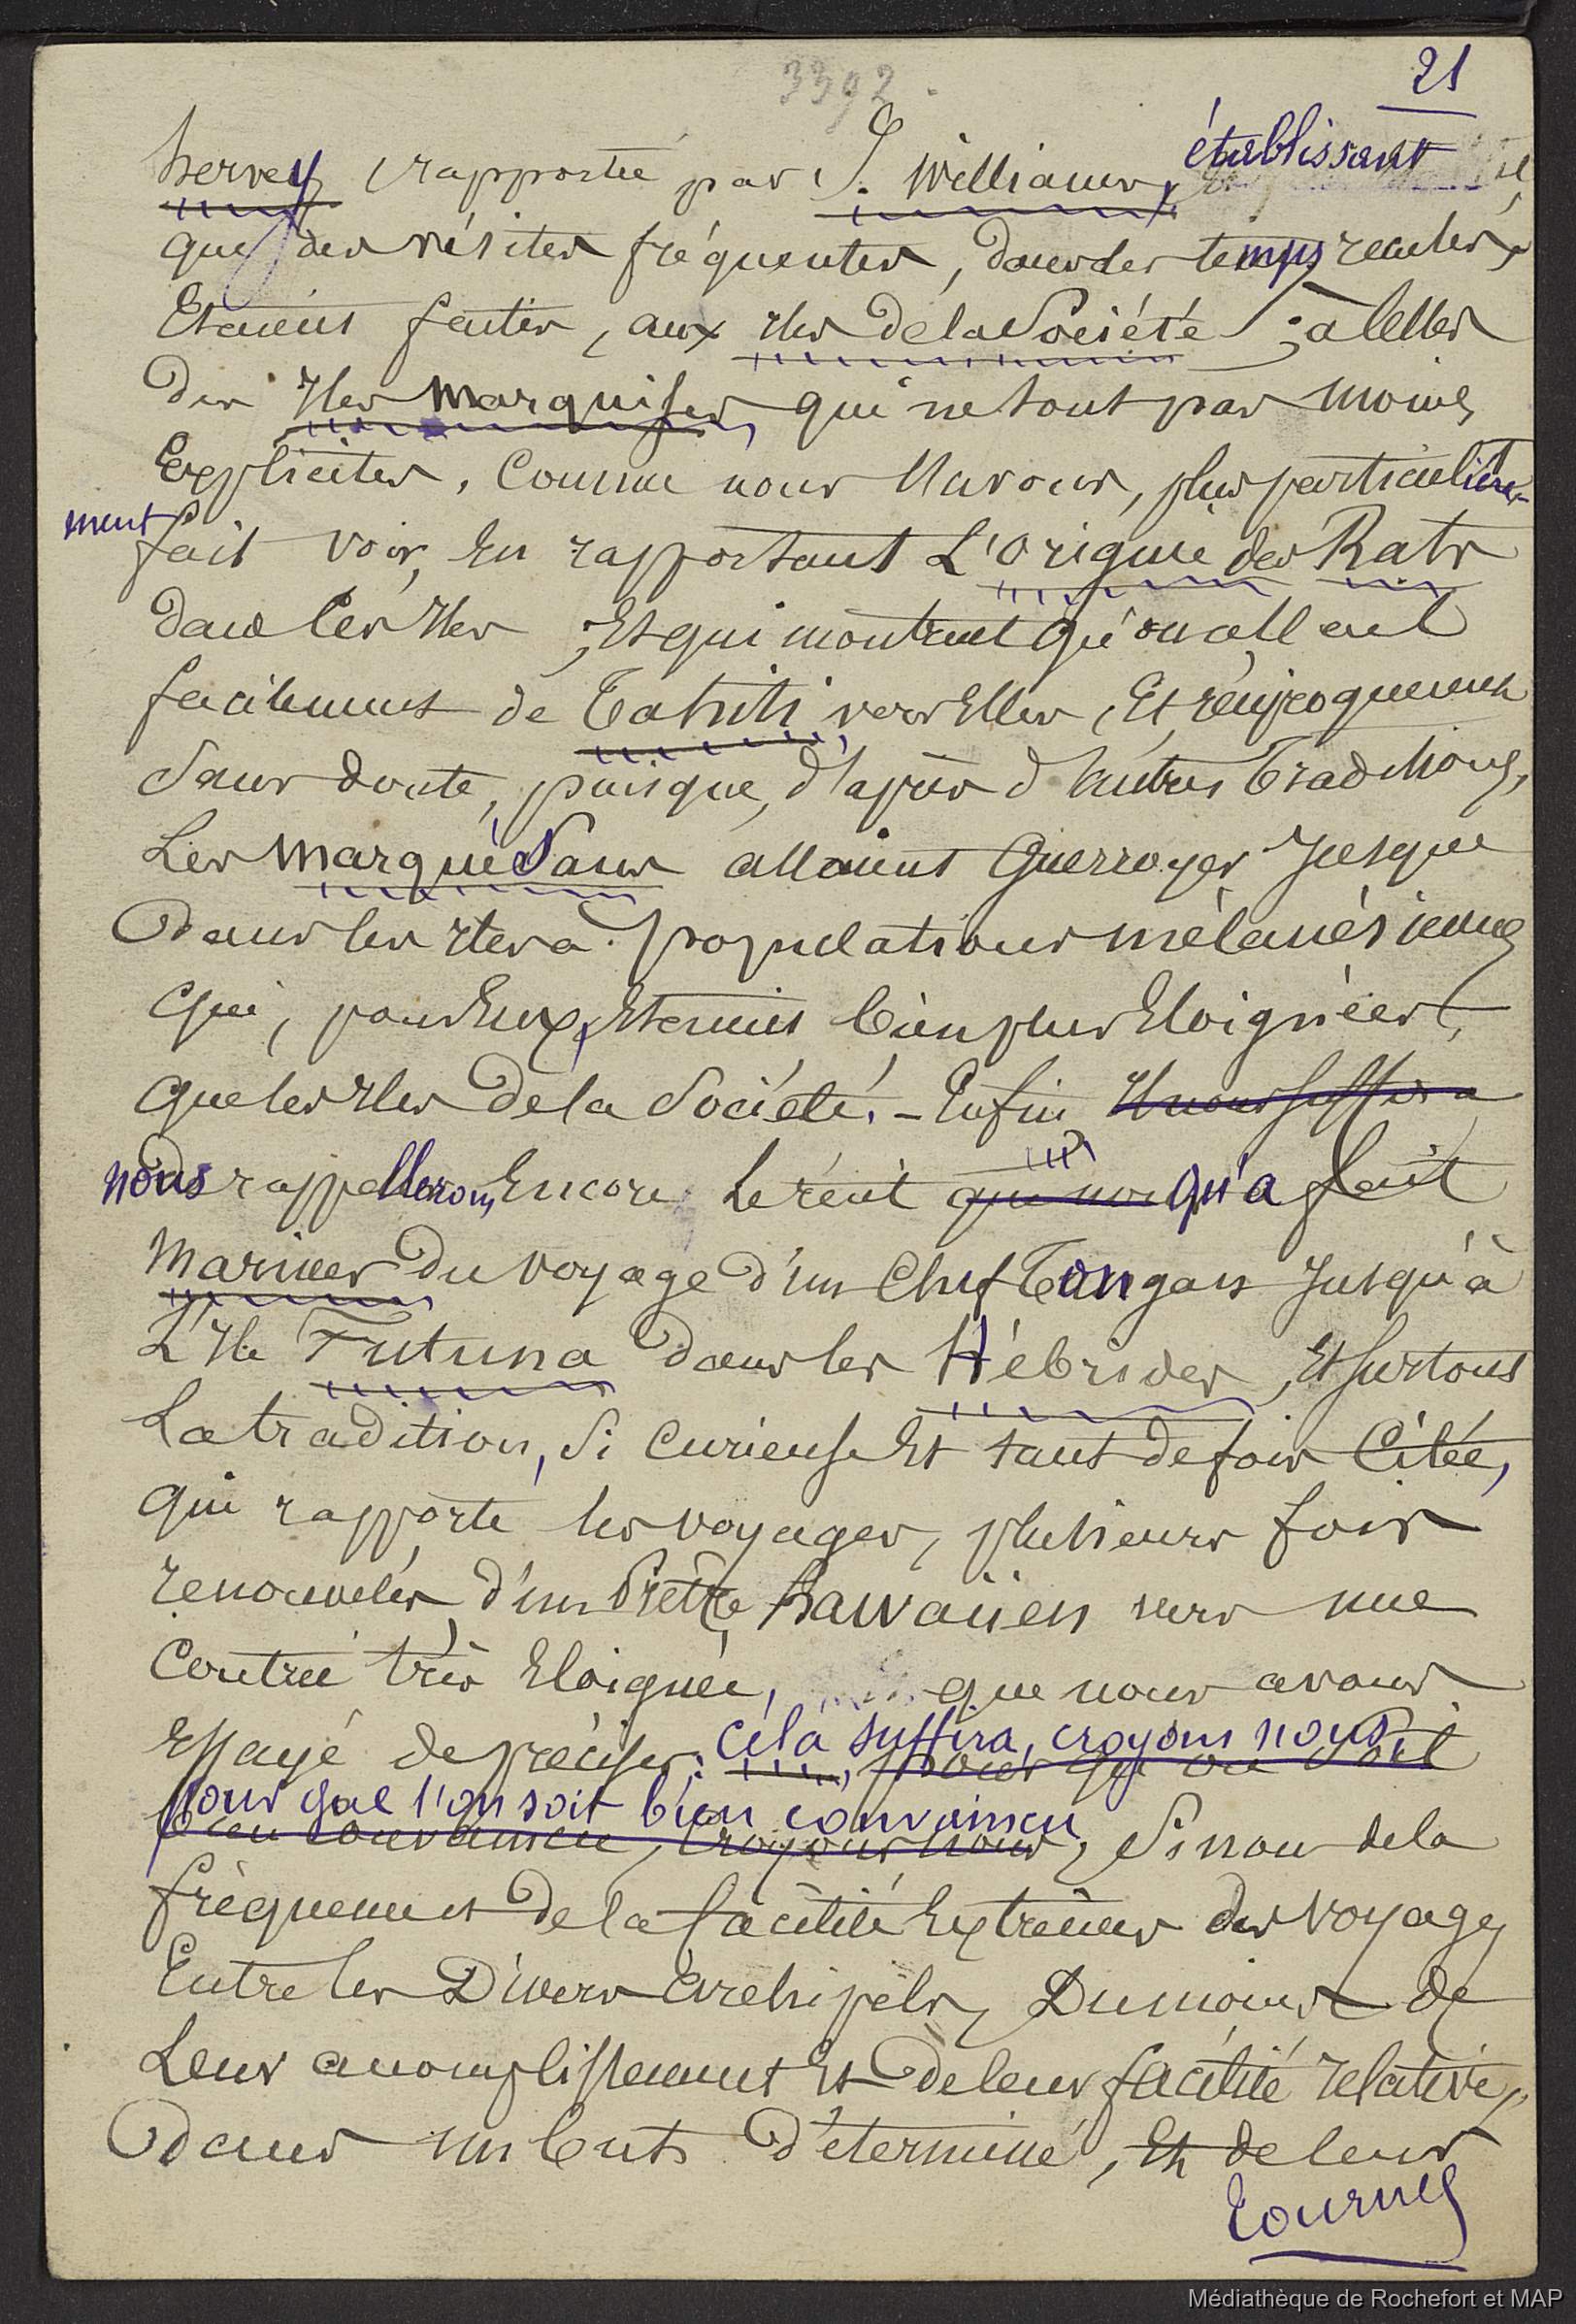 3392.
21
hervey, rapportée par J. Williams, établissant
que des visites fréquentes, dans des temps reculés,
Etaient faites, aux Iles de la Société ; à Celles
des Iles Marquises, qui ne sont pas moins
Explicites, Comme nous l'avons, plus particulière-
ment fait voir, En rapportant L'origine des Rats
dans les Iles ; Et qui montrent qu'on allait
facilement de Tahiti vers Elles, Et réciproquement
Sans doute, puisque, d'après d'autres Traditions,
Les Marquésans allaient Guerroyer Jusque
Dans les Iles à populations mélanésiennes
Qui, pour Eux, Etaient bien plus Eloignées,
que les Iles de la Société. - Enfin Il nous suffira
nous rappellerons Encore Le récit que nous qu'a fait
Mariner Du voyage d'un Chef Tongan Jusqu'à
L'Ile Futuna dans les Hébrides, Et surtout
La tradition, Si Curieuse Et tant de fois Citée,
Qui rapporte les voyages, plusieurs fois
renouvelés, d'un Prêtre hawaiien vers une
Contrée très Eloignée, que nous avons
Essayé de préciser : céla suffira, croyons nous, pour qu'on soit
pour que l'on soit bien convaincu
bien convaincu, croyons nous, Sinon de la
fréquence Et De la facilité Extrêmes des voyages
Entre les Divers Archipels, Du moins de
Leur accomplissement Et De leur facilité relative,
Dans un but Déterminé, Et de leur
tournez
Médiathèque de Rochefort et MAP